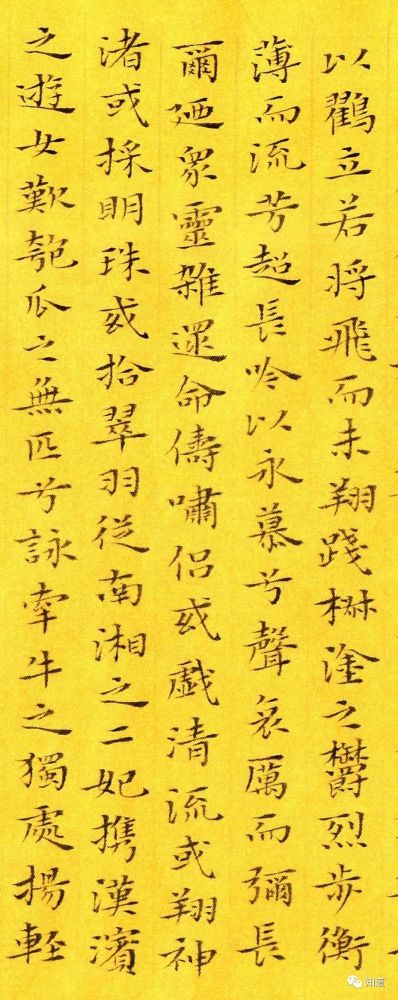 以鸛立若将飛而未翔踐椒塗之欝烈步衡
薄而流芳超長吟以永慕兮聲哀厲而彌長
爾廼衆靈雜遝命儔嘯侣或戯清流或翔神
渚或採明珠或拾翠羽從南湘之二妃携漢濱
之遊女歎匏瓜之無匹兮詠牽牛之獨處揚軽
知道